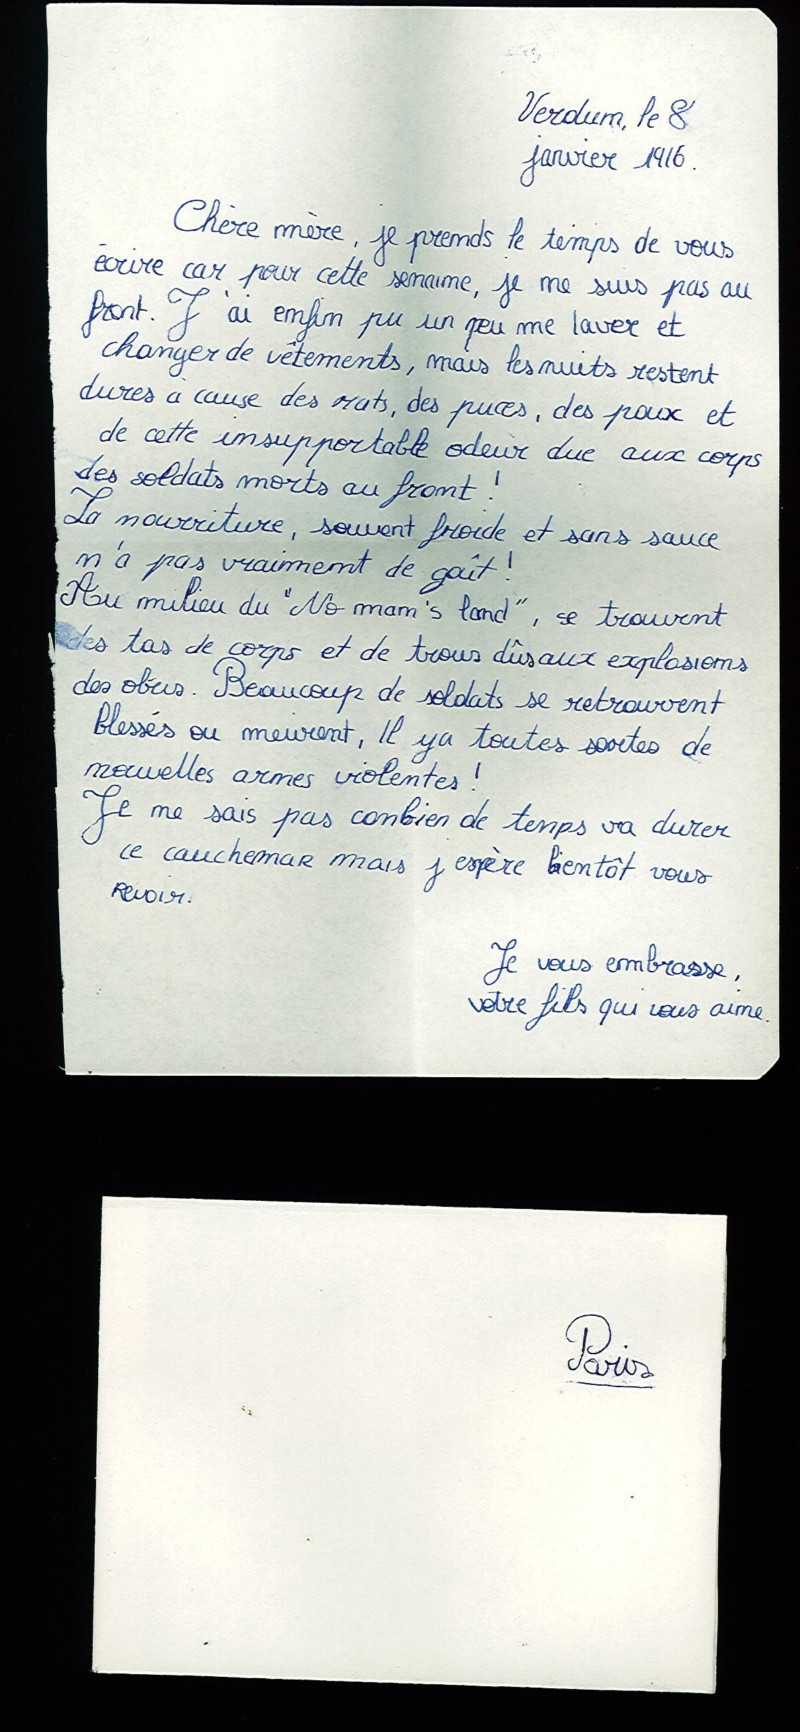 Verdun, le 8
janvier 1916.
Chère mère, je prends le temps de vous
écrire car pour cette semaine, je ne suis pas au
front. J'ai enfin pu un peu me laver et
changer de vêtements, mais les nuits restent
dures à cause des rats, des puces, des poux et
de cette insupportable odeur due aux corps
des soldats morts au front !
La nourriture, souvent froide et sans sauce
n'a pas vraiment de goût !
Au milieu du "No man's land", se trouvent
des tas de corps et de trous dûs aux explosions
des obus. Beaucoup de soldats se retrouvent
blessés ou meurent, Il y a toutes sortes de
nouvelles armes violentes !
Je ne sais pas combien de temps va durer
ce cauchemar mais j espère bientôt vous
revoir.
Je vous embrasse,
votre fils qui vous aime.
Paris